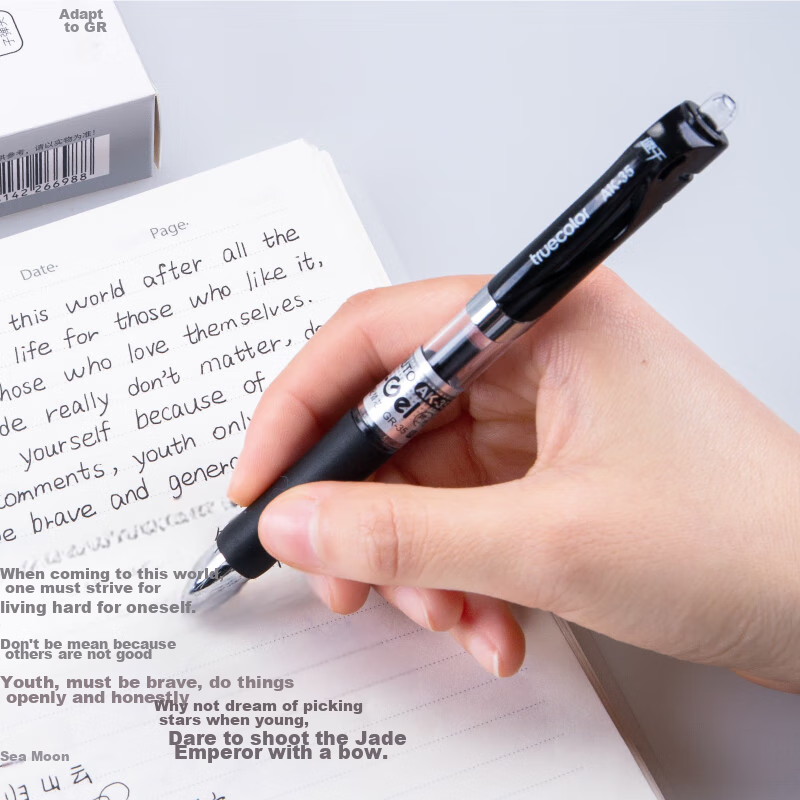 Adapt
to GR
供参考，请以实物为准！
142 266988
Date·
Page·
this world after all the
life for those who like it,
those who love themselves.
de really don't matter, do
yourself because of
comments, youth only
be brave and genero
真彩
truecolor AK-35
Gel
GR-35
When coming to this world,
one must strive for
living hard for oneself.
Don't be mean because
others are not good
Youth, must be brave, do things
openly and honestly
Why not dream of picking
stars when young,
Dare to shoot the Jade
Emperor with a bow.
Sea Moon
归山云